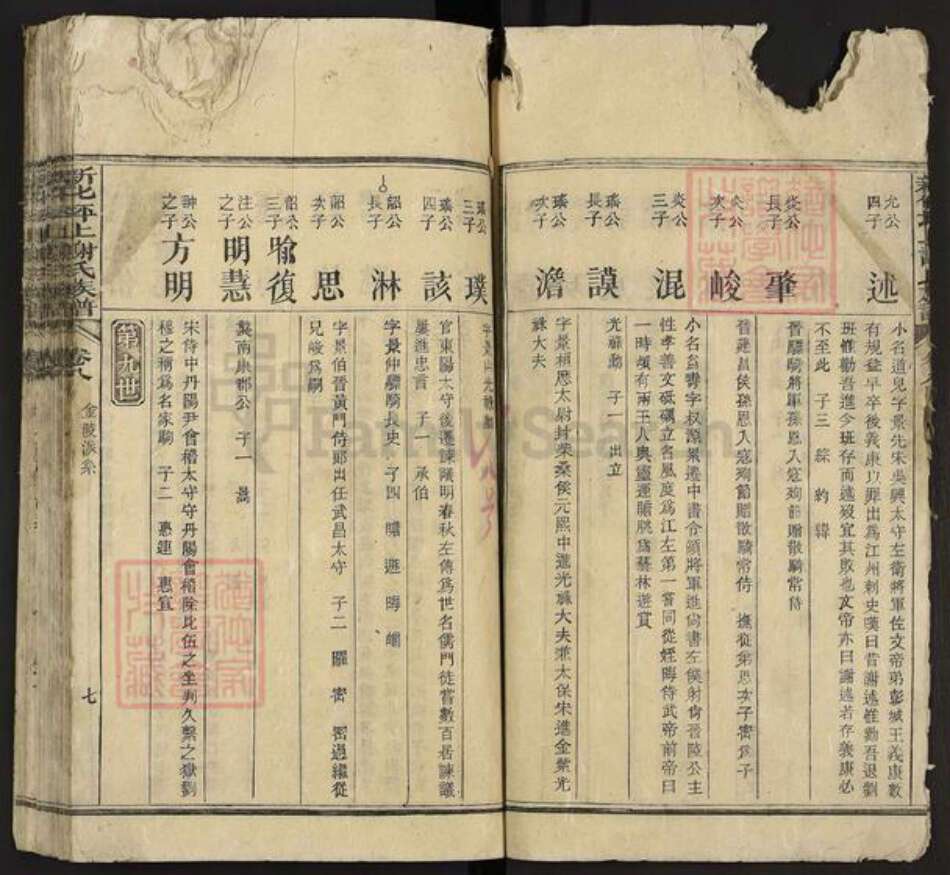 允公
四子
述
小名道兒字景先宋吳興太守左衛將軍佐文帝弟彭城王義康數
有規益早卒後義康以罪出為江州刺史嘆曰昔謝述惟勸吾退劉
班惟勸吾進今班存而述歿宜其敗也文帝亦曰謝述若存義康必
不至此 子三 綜 約 緯
炎公
長子
肇
晉驃騎將軍孫恩入寇殉節贈散騎常侍
炎公
次子
峻
晉建昌侯孫恩入寇殉節贈散騎常侍 撫從弟思次子密為子
炎公
三子
混
小名益壽字叔源累遷中書令領將軍進尚書左僕射尚晉陵公主
性孝善文砥礪立名風度為江左第一嘗同從姪晦侍武帝前帝曰
一時頓有兩玉人與靈運瞻脁為藝林遊賞
瑤公
長子
謨
光祿勳 子一 出立
瑤公
次子
澹
字景桓歷太尉封柴桑侯元熙中進光祿大夫兼太保宋進金紫光
祿大夫
瑤公
三子
璞
瑤公
四子
該
官東陽太守後遷諫議明春秋左傳為世名儒門徒嘗數百居諫議
屢進忠言 子一 承伯
韶公
長子
淋
字景仲驃騎長史 子四 瞻 遯 晦 㬭
韶公
次子
思
字景伯晉黃門侍郎出任武昌太守 子二 曜 密 密過繼從
兄峻為嗣
韶公
三子
喻復
注公
之子
明慧
襲南康郡公 子一 暠
第九世
神公
之子
方明
宋侍中丹陽尹會稽太守守丹陽會稽除比伍之坐判久繫之獄劉
穆之稱為名家駒 子二 惠連 惠宣
新化坪上謝氏族譜
卷八
金陵派系
七